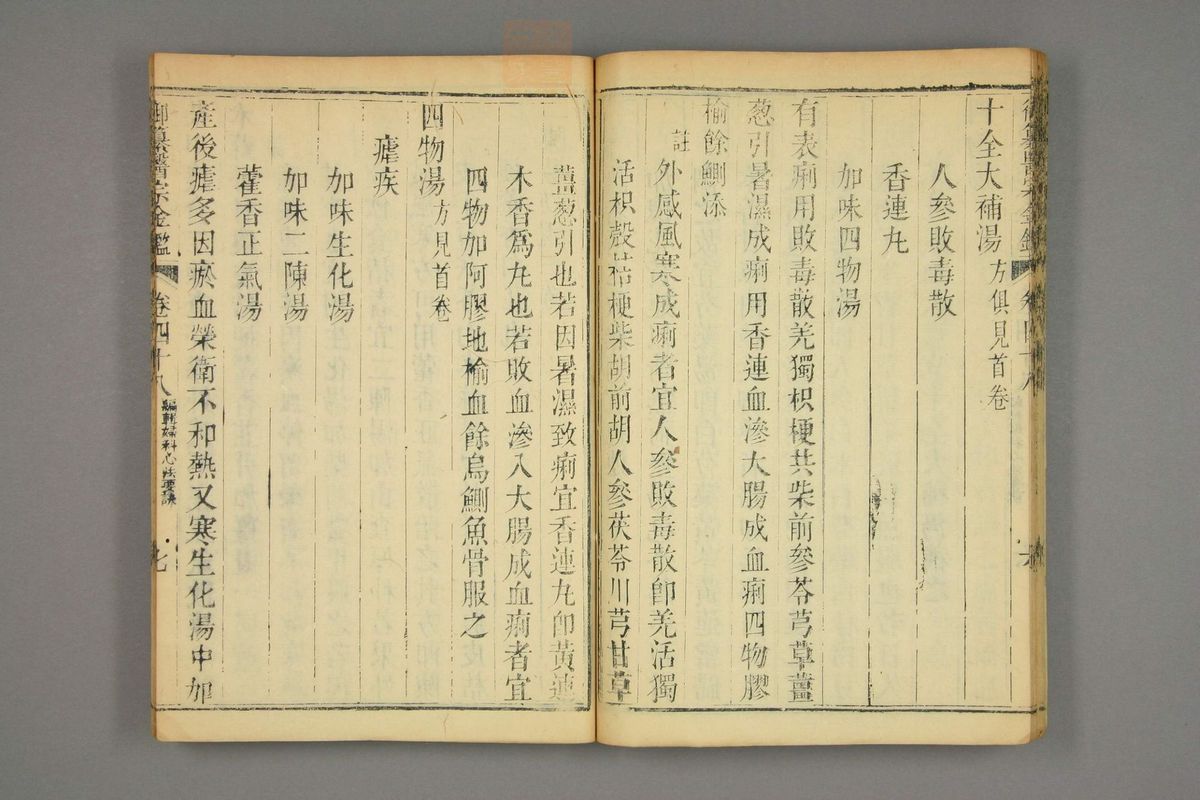 御纂醫宗金鑑 卷四十八 六
十全大補湯方俱見首卷
人參敗毒散
香連丸
加味四物湯
有表痢用敗毒散羌獨枳梗共柴前參苓芎草薑
葱引暑濕成痢用香連血滲大腸成血痢四物膠
榆餘鰂添
註外感風寒成痢者宜人參敗毒散卽羌活獨
活枳殼桔梗柴胡前胡人參茯苓川芎甘草
薑葱引也若因暑濕致痢宜香連丸卽黃連
木香爲丸也若敗血滲入大腸成血痢者宜
四物加阿膠地榆血餘烏鰂魚骨服之
四物湯方見首卷
瘧疾
加味生化湯
加味二陳湯
藿香正氣湯
產後瘧多因瘀血榮衛不和熱又寒生化湯中加
御纂醫宗金鑑 卷四十八 編輯婦科心法要訣 七